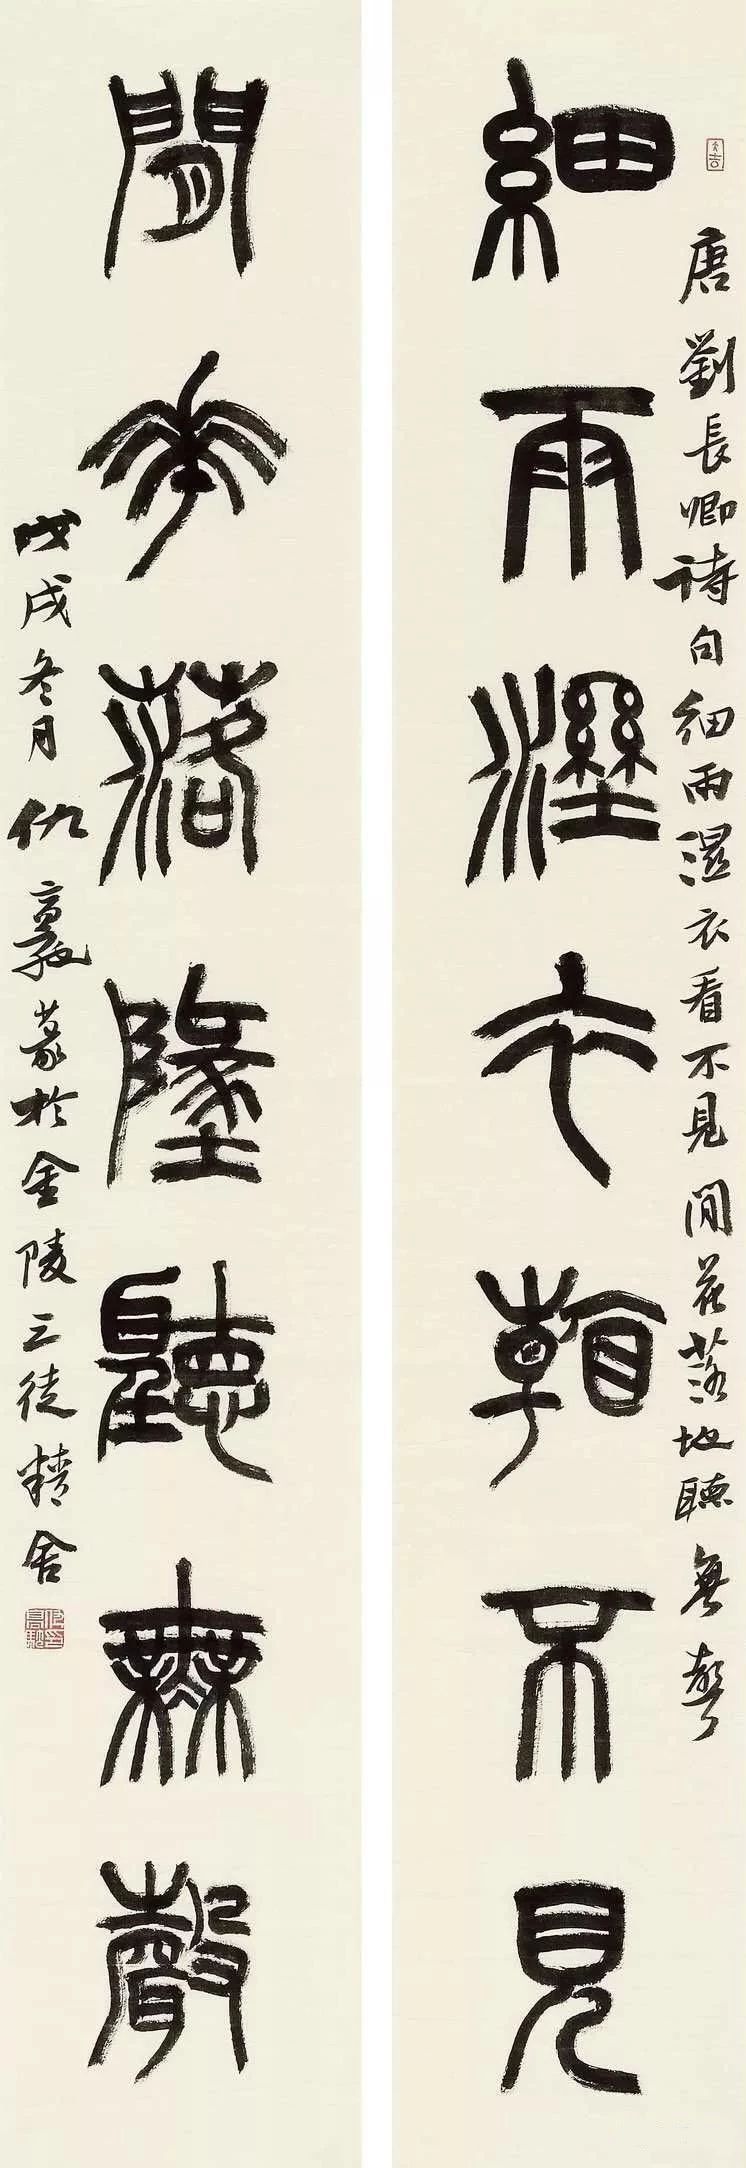 唐劉長卿詩句細雨濕衣看不見閒花落地聽無聲
細雨溼衣看不見
閒花落墬聽無聲
戊戌冬月仇篆於金陵三徒精舍
大吉